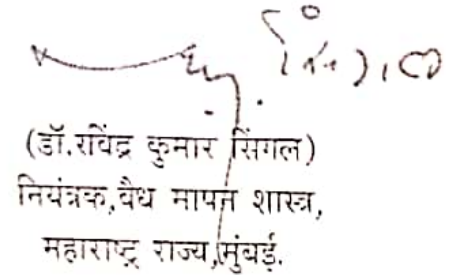 (डॉ.रविंद्र कुमार सिंगल)
नियंत्रक,वैध मापन शास्त्र,
महाराष्ट्र राज्य,मुंबई.